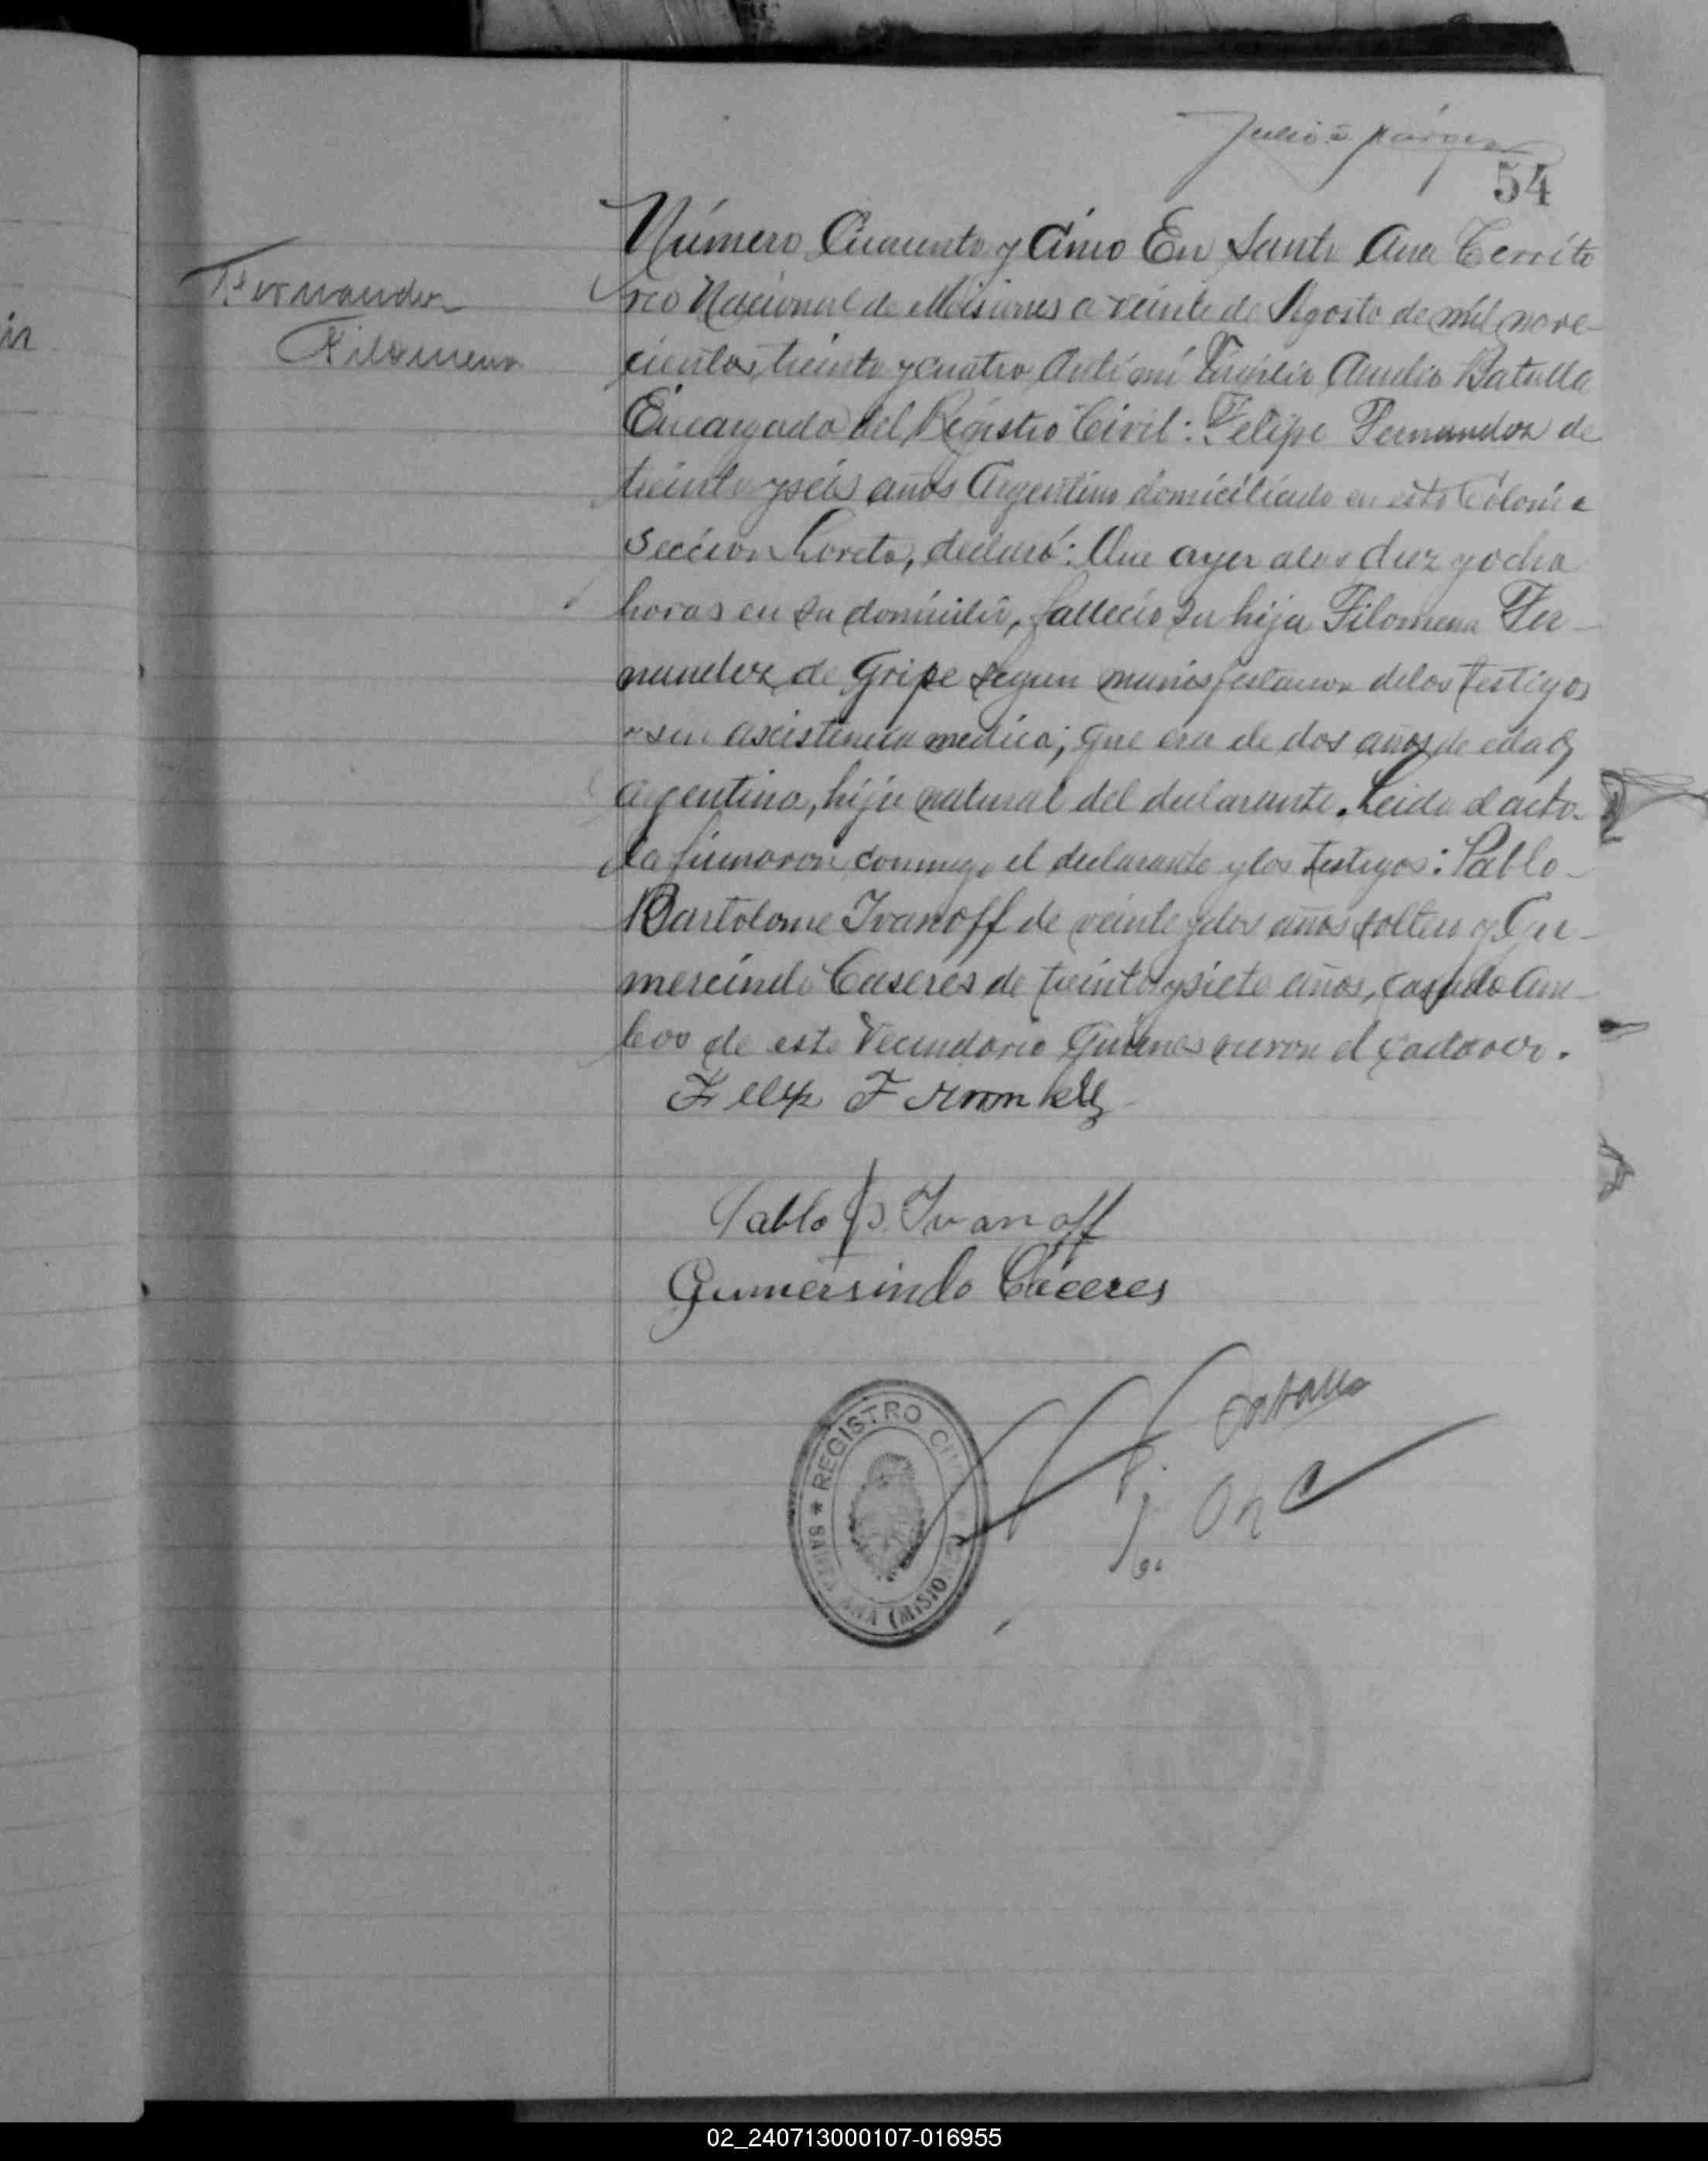 54
Número Cuarenta y Cinco En Santa Ana Territo
rio Nacional de Misiones a veinte de Agosto de mil nove-
cientos treinta y cuatro Anti mi Virgilio Aurelio Batalla
Encargado del Registro Civil: Felipe Fernandez de
treinta y seis años Argentino domiciliado en esta Colonia
Seccion Loreto, declaró: Que ayer a las diez y ocho
horas en su domicilio, fallecio su hija Filomena Fer-
nandez de Gripe segun manisfestacion de los testigos
sin ascistencia medica; que era de dos años de edad,
argentina, hija natural del declarante. Leida el acta
la firmaron conmigo el declarante y los testigos: Pablo
Bartolome Ivanoff de veinte y dos años soltero y Gu-
mercindo Caseres de treinta y siete años, casado Am-
bos de este Vecindario Quienes vieron el cadaver.
Fernandez
Filomena
Pablo B. Ivanoff
Gumersindo Cáceres
REGISTRO CIVIL
SANTA ANA (MISIONES)
Batalla
02_240713000107-016955